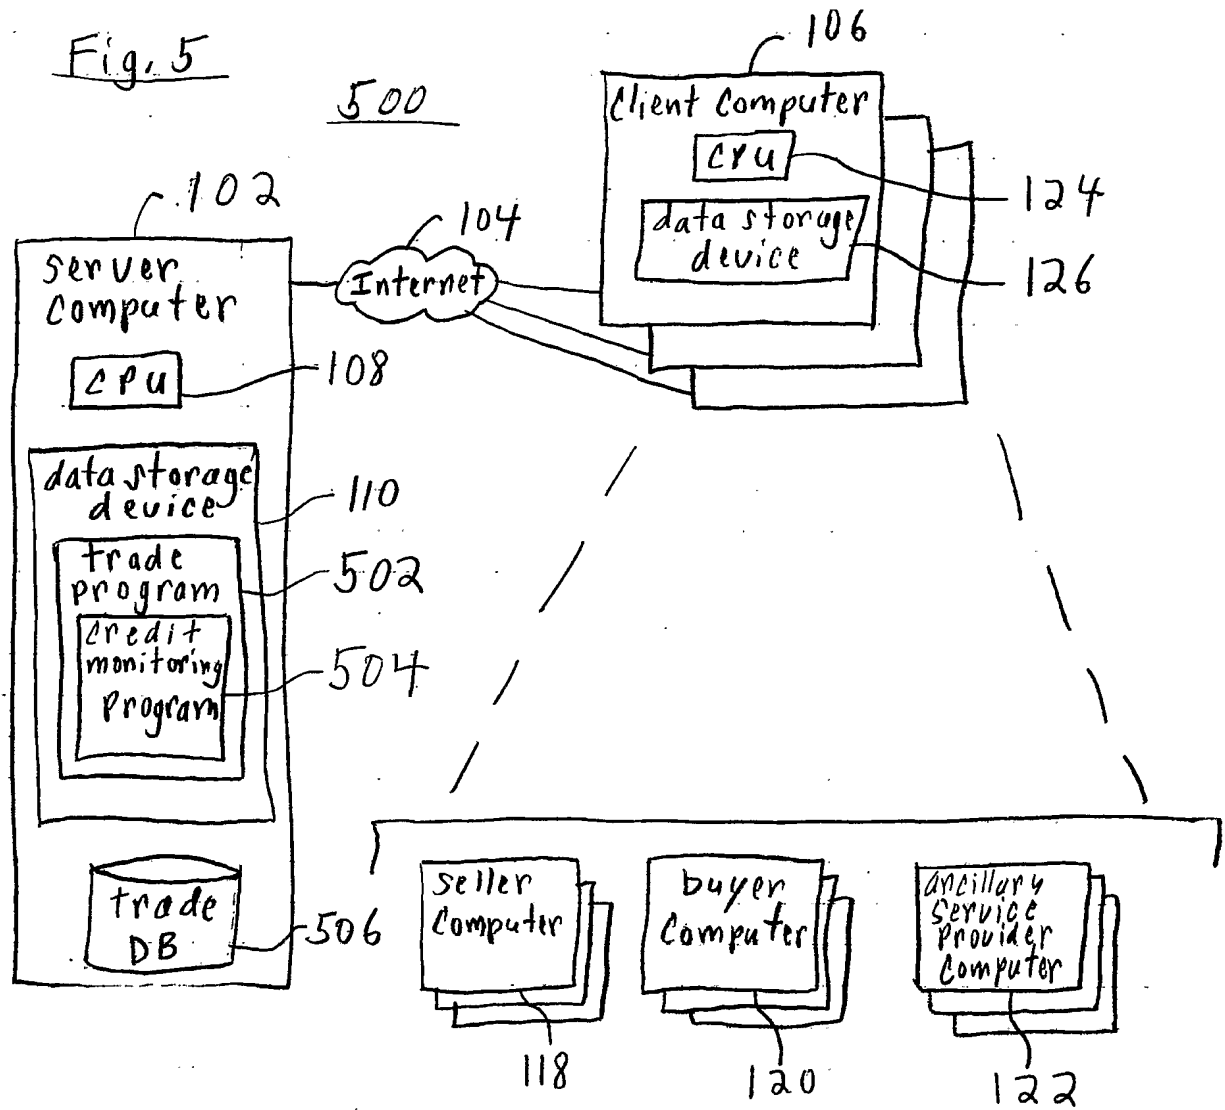 Fig. 5
500
106
client computer
CPU
124
data storage
device
126
102
104
Internet
server
computer
CPU
108
data storage
device
110
trade
program
502
credit
monitoring
program
504
trade
DB
506
seller
computer
118
buyer
computer
120
ancillary
service
provider
computer
122